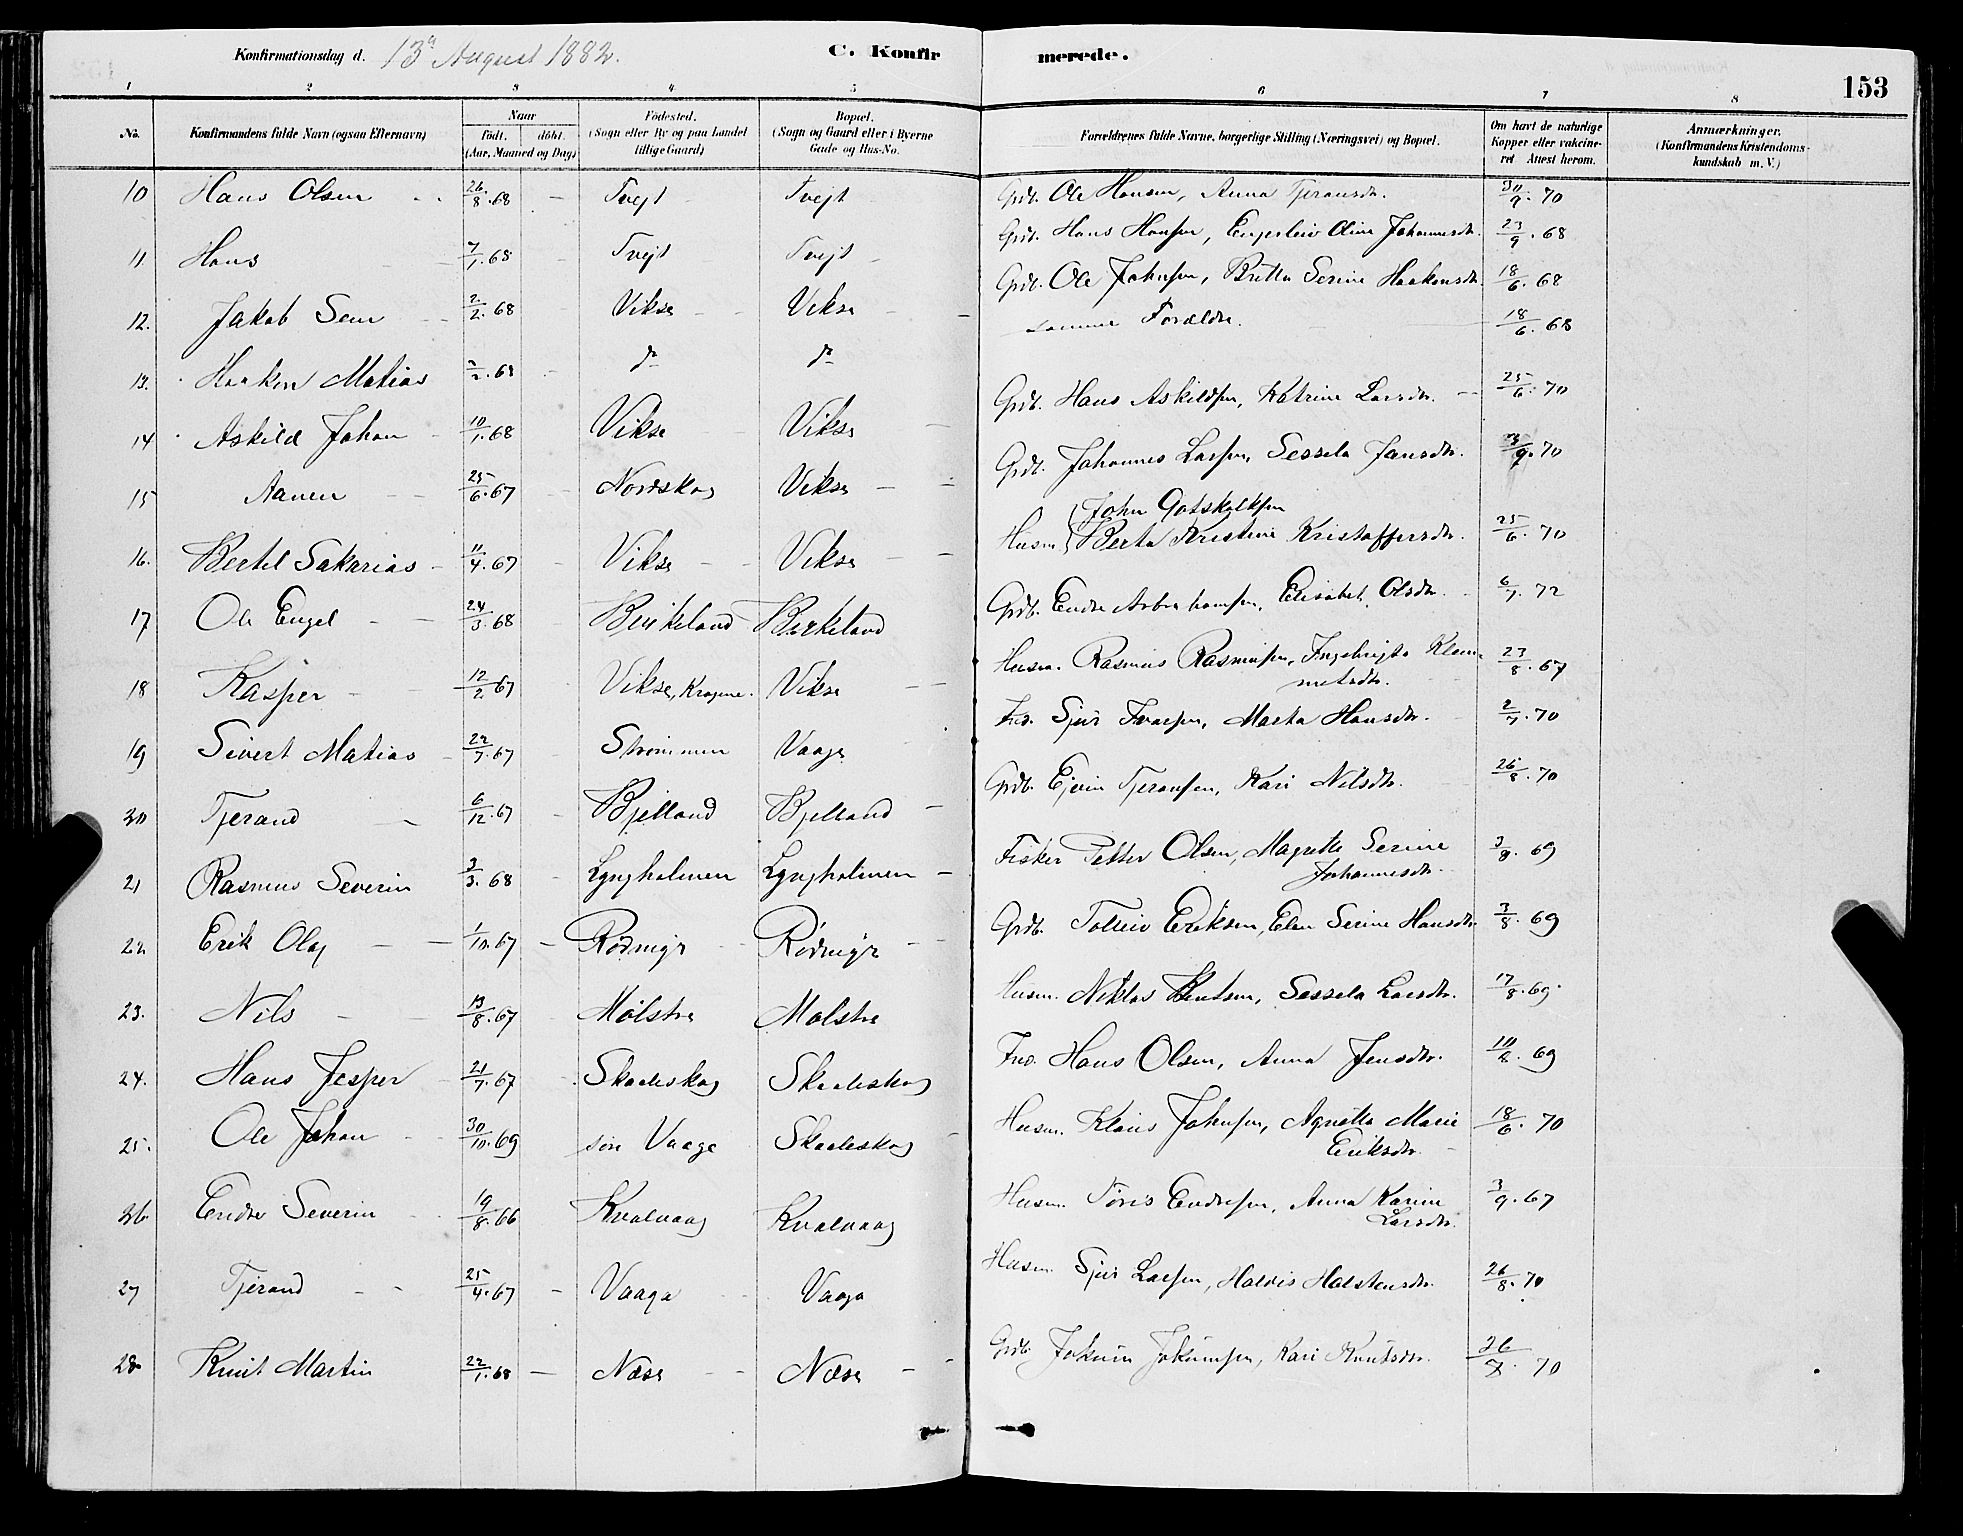 Konfirmationsdag d. 13de August 1882. C. Konfirmerede. 153
1 2 3 4 5 6 7 8
No. Konfirmandens fulde Navn (ogsaa Efternavn) Naar født. døbt. (Aar, Maaned og Dag) Fødested. (Sogn eller By og paa Landet tillige Gaard) Bopæl. (Sogn og Gaard eller i Byerne Gade og Hus-No. Forældrenes fulde Navne, borgerlige Stilling (Næringsvei) og Bopæl. Om havt de naturlige Kopper eller vakcineret Attest herom. Anmærkninger. (Konfirmandens Kristendomskundskab m. V.)
10 Hans Olsen 26/8.68 Tvejt Tvejt Grdb. Ole Hansen, Anna Tjeransdtr. 30/9.70
11 Hans 7/1.68 Tvejt Tvejt Grdb. Hans Hansen, Engeleiv Oline Johannesdtr. 23/9.68
12. Jakob Sem 2/2.68 Vikse Vikse Grdb. Ole Johnsen, Britta Serine Haakensdtr. 18/6.68
13. Haaken Matias 2/2.68 do do samme Forældre. 18/6.68
14 Askild Johan 10/1.68 Vikse Vikse Grdb. Hans Askildsen, Katrine Larsdtr. 25/6.70
15 Aanen 25/6.67 Nordskog Vikse Grdb. Johannes Larsen, Sessela Jansdtr. 9.70
16. Bertel Sakarias 11/4.67 Vikse Vikse Husm. {John Gotskalksen Berta Kristine Kristoffersdtr. 25/6.70
17 Ole Engel 24/3.68 Birkeland Birkeland Grdb. Endre Abrahamsen, Elisabet Olsdtr. 6/7.72
18 Kasper 12/2.67 Vikse, Kragene. Vikse Husm. Rasmus Rasmusen, Ingebrigta Klemmetsdtr. 23/8.67
19 Sivert Matias 22/7.67 Strømmen Vaage Ind. Sjur Ivarsen, Marta Hansdtr. 2/7.70
20 Tjerand 6/12.67 Bjelland Bjelland Grdb. Ejvin Tjeransen, Kari Nilsdtr. 26/8.70
21 Rasmus Severin 3/3.68 Lyngholmen Lyngholmen Fisker Petter Olsen, Magrette Serine Johannesdtr. 3/8.69
22 Erik Olaj 1/10.67 Rødmyr Rødmyr Grdb. Tolleiv Eriksen, Elen Serine Hansdtr. 3/8.69
23. Nils 13/8.67 Mølstre Mølstre Husm. Niklas Bentsen, Sessela Larsdtr. 17/8.69
24. Hans Jesper 21/7.67 Skaaleskog Skaaleskog Ind. Hans Olsen, Anna Jensdtr. 10/8.69
25. Ole Johan 30/10.69 søre Vaage Skaaleskog Husm. Klaus Johnsen, Agnetta Marie Eriksdtr. 18/6.70
26 Endre Severin 19/8.66 Kvalvaag Kvalvaag Husm. Tøris Endresen, Anna Karine Larsdtr. 3/9.67
27 Tjerand 25/4.67 Vaaga Vaage Husm. Sjur Larsen, Halvis Halstensdtr. 26/8.70
28 Knut Martin 22/1.68 Næse Næse Grdb. Jokum Jokumsen, Kari Knutsdtr. 26/8.70